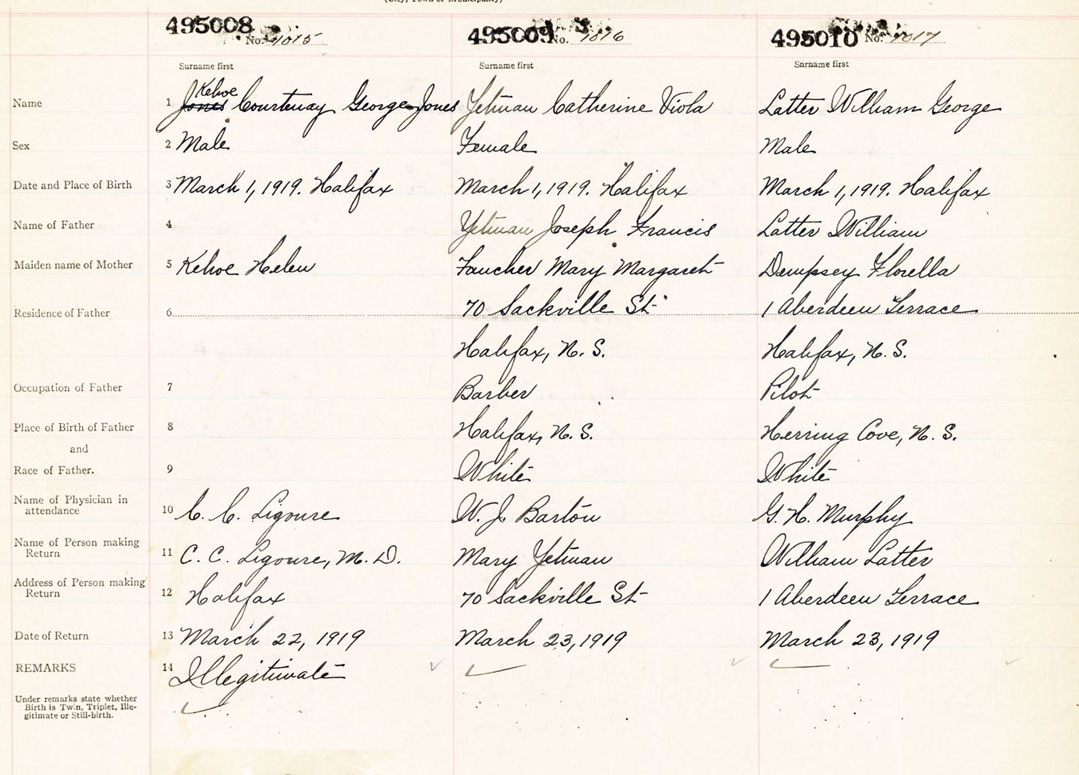 (City, Town or Municipality)
495008 No. 1015 495009 No. 1016 495010 No. 1017
Surname first Surname first Surname first
Kehoe
Name 1 Jones Courtenay George Jones Yetman Catherine Viola Latter William George
Sex 2 Male Female Male
Date and Place of Birth 3 March 1, 1919. Halifax March 1, 1919. Halifax March 1, 1919. Halifax
Name of Father 4 Yetman Joseph Francis Latter William
Maiden name of Mother 5 Kehoe Helen Faucher Mary Margaret Dempsey Florella
Residence of Father 6 70 Sackville St 1 Aberdeen Terrace
Halifax, N. S. Halifax, N. S.
Occupation of Father 7 Barber Pilot
Place of Birth of Father 8 Halifax, N. S. Herring Cove, N. S.
and
Race of Father. 9 White White
Name of Physician in
attendance 10 C. C. Ligoure W. J. Barton G. H. Murphy
Name of Person making
Return 11 C. C. Ligoure, M. D. Mary Yetman William Latter
Address of Person making
Return 12 Halifax 70 Sackville St 1 Aberdeen Terrace
Date of Return 13 March 22, 1919 March 23, 1919 March 23, 1919
REMARKS 14 Illegitimate
Under remarks state whether
Birth is Twin, Triplet, Ille-
gitimate or Still-birth.